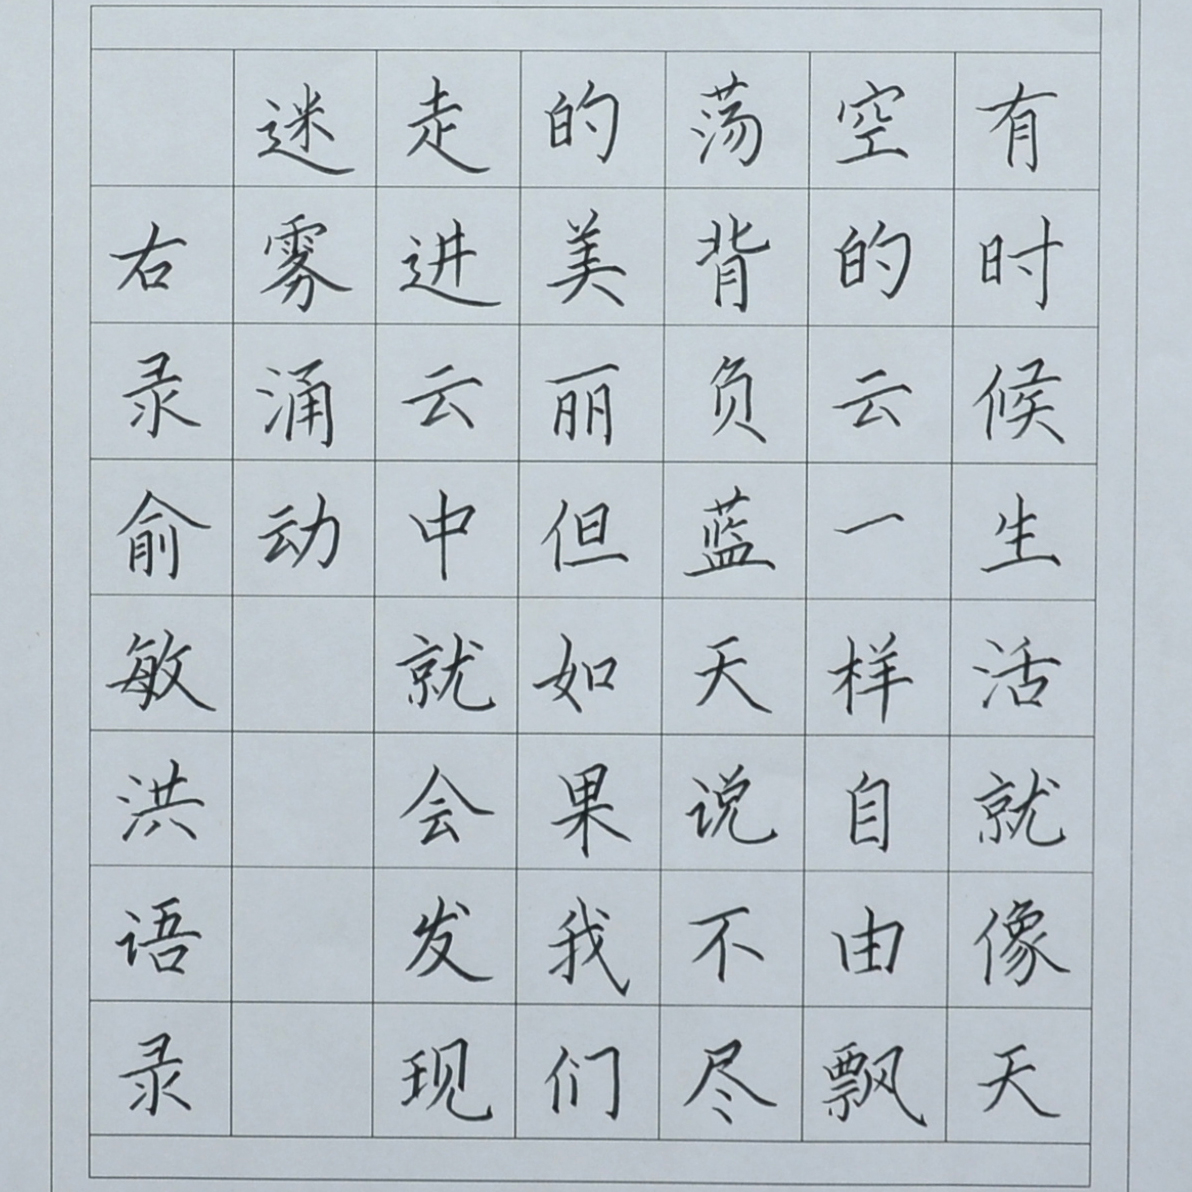 有时候生活就像天
空的云一样自由飘
荡背负蓝天说不尽
的美丽但如果我们
走进云中就会发现
迷雾涌动
右录俞敏洪语录